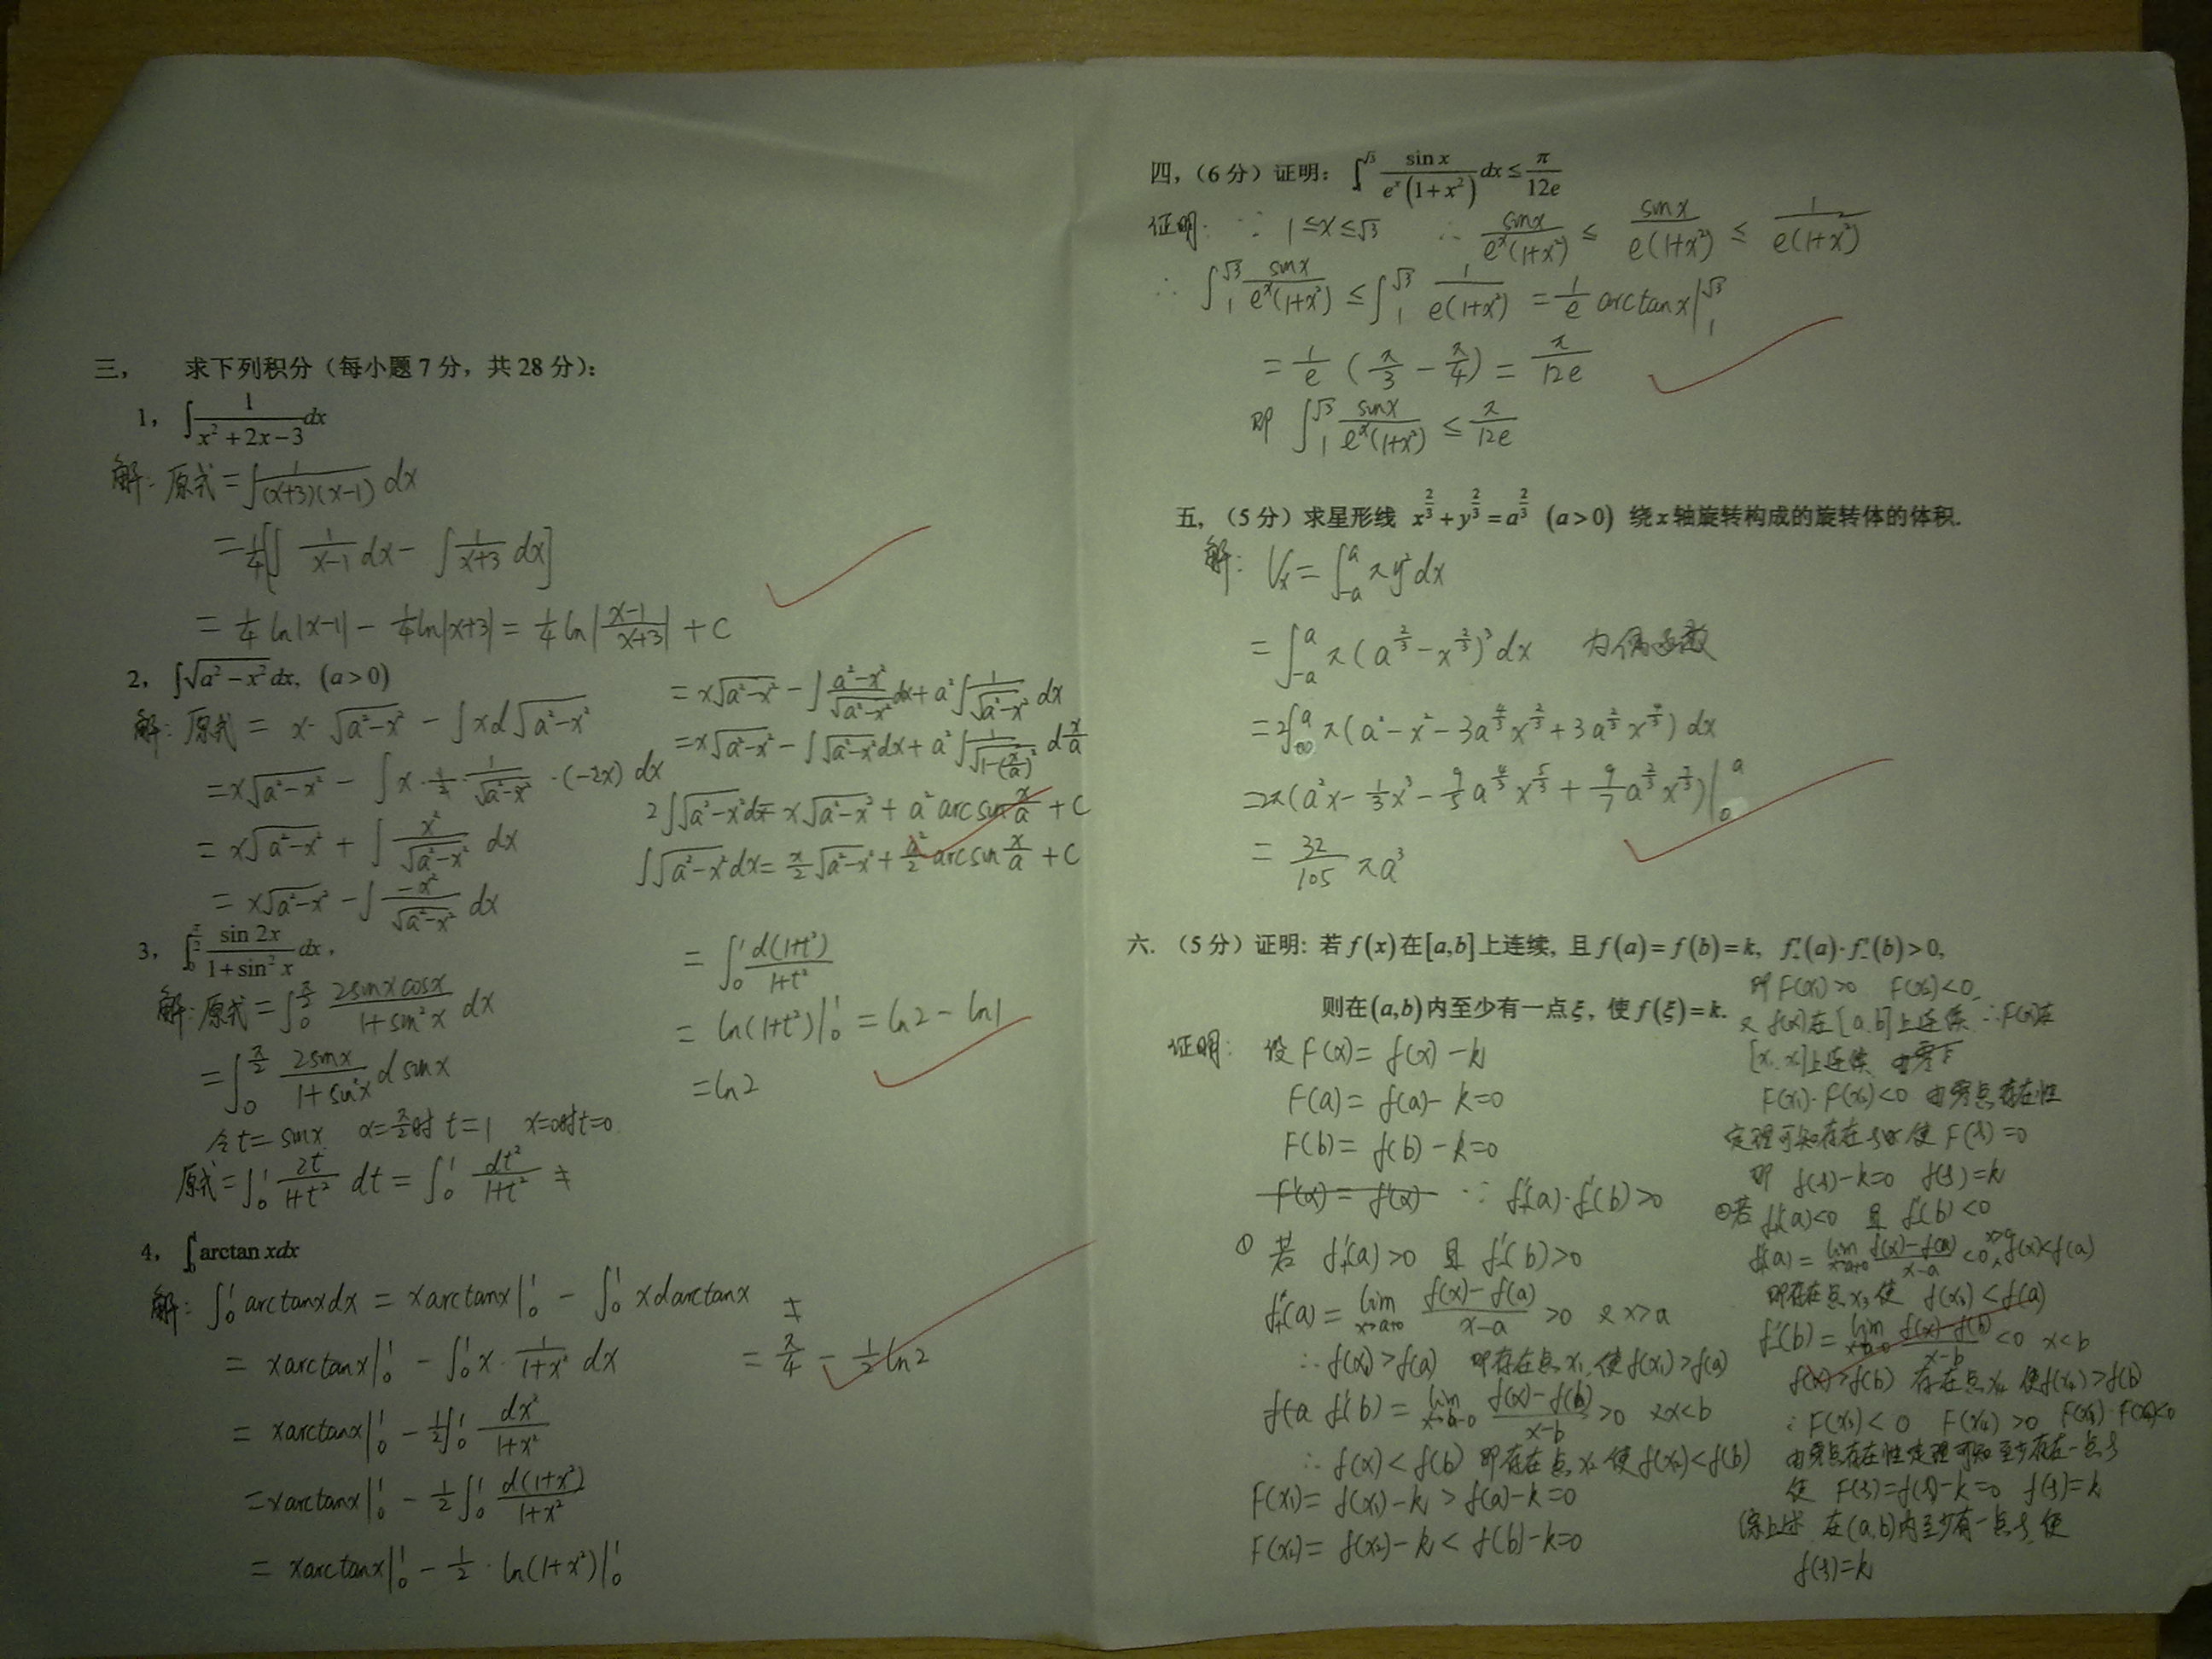 三， 求下列积分（每小题 7 分，共 28 分）：
1， ∫ 1/(x²+2x−3) dx
解：原式 = ∫ 1/((x+3)(x−1)) dx
= 1/4[∫ 1/(x−1) dx − ∫ 1/(x+3) dx]
= 1/4 ln|x−1| − 1/4 ln|x+3| = 1/4 ln|(x−1)/(x+3)| + C
2， ∫√(a²−x²) dx, (a>0)
解：原式 = x·√(a²−x²) − ∫x d√(a²−x²)
= x√(a²−x²) − ∫ x·1/2·1/√(a²−x²)·(−2x) dx
= x√(a²−x²) + ∫ x²/√(a²−x²) dx
= x√(a²−x²) − ∫ −x²/√(a²−x²) dx
= x√(a²−x²) − ∫ (a²−x²)/√(a²−x²) dx + a²∫ 1/√(a²−x²) dx
= x√(a²−x²) − ∫√(a²−x²) dx + a²∫ 1/√(1−(x/a)²) d x/a
2∫√(a²−x²) dx = x√(a²−x²) + a² arcsin x/a + C
∫√(a²−x²) dx = x/2 √(a²−x²) + a²/2 arcsin x/a + C
3， ∫₀^(π/2) sin 2x/(1+sin² x) dx ,
解：原式 = ∫₀^(π/2) 2sinx cosx/(1+sin²x) dx
= ∫₀^(π/2) 2sinx/(1+sin²x) d sinx
令 t = sinx x=π/2时 t=1 x=0时 t=0
原式 = ∫₀¹ 2t/(1+t²) dt = ∫₀¹ dt²/(1+t²)
= ∫₀¹ d(1+t²)/(1+t²)
= ln(1+t²)|₀¹ = ln2 − ln1
= ln2
4， ∫₀¹ arctan xdx
解：∫₀¹ arctanxdx = xarctanx|₀¹ − ∫₀¹ xdarctanx
= xarctanx|₀¹ − ∫₀¹ x·1/(1+x²) dx
= xarctanx|₀¹ − 1/2∫₀¹ dx²/(1+x²)
= xarctanx|₀¹ − 1/2∫₀¹ d(1+x²)/(1+x²)
= xarctanx|₀¹ − 1/2·ln(1+x²)|₀¹
= π/4 − 1/2 ln2
四，（6 分）证明： ∫₁^√3 sin x/(eˣ(1+x²)) dx ≤ π/12e
证明：∵ 1≤x≤√3 ∴ sinx/(eˣ(1+x²)) ≤ sinx/(e(1+x²)) ≤ 1/(e(1+x²))
∴ ∫₁^√3 sinx/(eˣ(1+x²)) ≤ ∫₁^√3 1/(e(1+x²)) = 1/e arctanx|₁^√3
= 1/e (π/3 − π/4) = π/12e
即 ∫₁^√3 sinx/(eˣ(1+x²)) ≤ π/12e
五，（5 分）求星形线 x^(2/3)+y^(2/3)=a^(2/3) (a>0) 绕 x 轴旋转构成的旋转体的体积.
解：Vx = ∫₋ₐᵃ πy²dx
= ∫₋ₐᵃ π(a^(2/3)−x^(2/3))³dx 为偶函数
= 2∫₀ᵃ π(a²−x²−3a^(4/3)x^(2/3)+3a^(2/3)x^(4/3)) dx
= 2π(a²x − 1/3x³ − 9/5a^(4/3)x^(5/3) + 9/7a^(2/3)x^(7/3))|₀ᵃ
= 32/105 πa³
六.（5 分）证明: 若 f(x)在[a,b]上连续, 且 f(a)=f(b)=k, f₊'(a)·f₋'(b)>0,
则在(a,b)内至少有一点ξ, 使 f(ξ)=k.
证明： 设 F(x) = f(x)−k
F(a) = f(a)−k=0
F(b) = f(b)−k=0
∵ f₊'(a)·f₋'(b)>0
① 若 f₊'(a)>0 且 f₋'(b)>0
f₊'(a) = lim x→a+0 (f(x)−f(a))/(x−a) >0 又x>a
∴ f(x)>f(a) 即存在点x₁, 使f(x₁)>f(a)
f₋'(b) = lim x→b−0 (f(x)−f(b))/(x−b) >0 又x<b
∴ f(x)<f(b) 即存在点x₂ 使f(x₂)<f(b)
F(x₁) = f(x₁)−k > f(a)−k=0
F(x₂) = f(x₂)−k < f(b)−k=0
即F(x₁)>0 F(x₂)<0
又 f(x)在[a,b]上连续 ∴F(x)在
[x₁,x₂]上连续
F(x₁)·F(x₂)<0 由零点存在性
定理可知存在ξ 使 F(ξ)=0
即 f(ξ)−k=0 f(ξ)=k
②若 f₊'(a)<0 且 f₋'(b)<0
f₊'(a) = lim x→a+0 (f(x)−f(a))/(x−a) <0 x>a f(x)<f(a)
即存在点x₃使 f(x₃)<f(a)
f₋'(b) = lim x→b−0 (f(x)−f(b))/(x−b) <0 x<b
f(x)>f(b) 存在点x₄ 使f(x₄)>f(b)
∴F(x₃)<0 F(x₄)>0 F(x₃)·F(x₄)<0
由零点存在性定理可知至少存在一点ξ
使 F(ξ)=f(ξ)−k=0 f(ξ)=k
综上述 在(a,b)内至少有一点ξ 使
f(ξ)=k